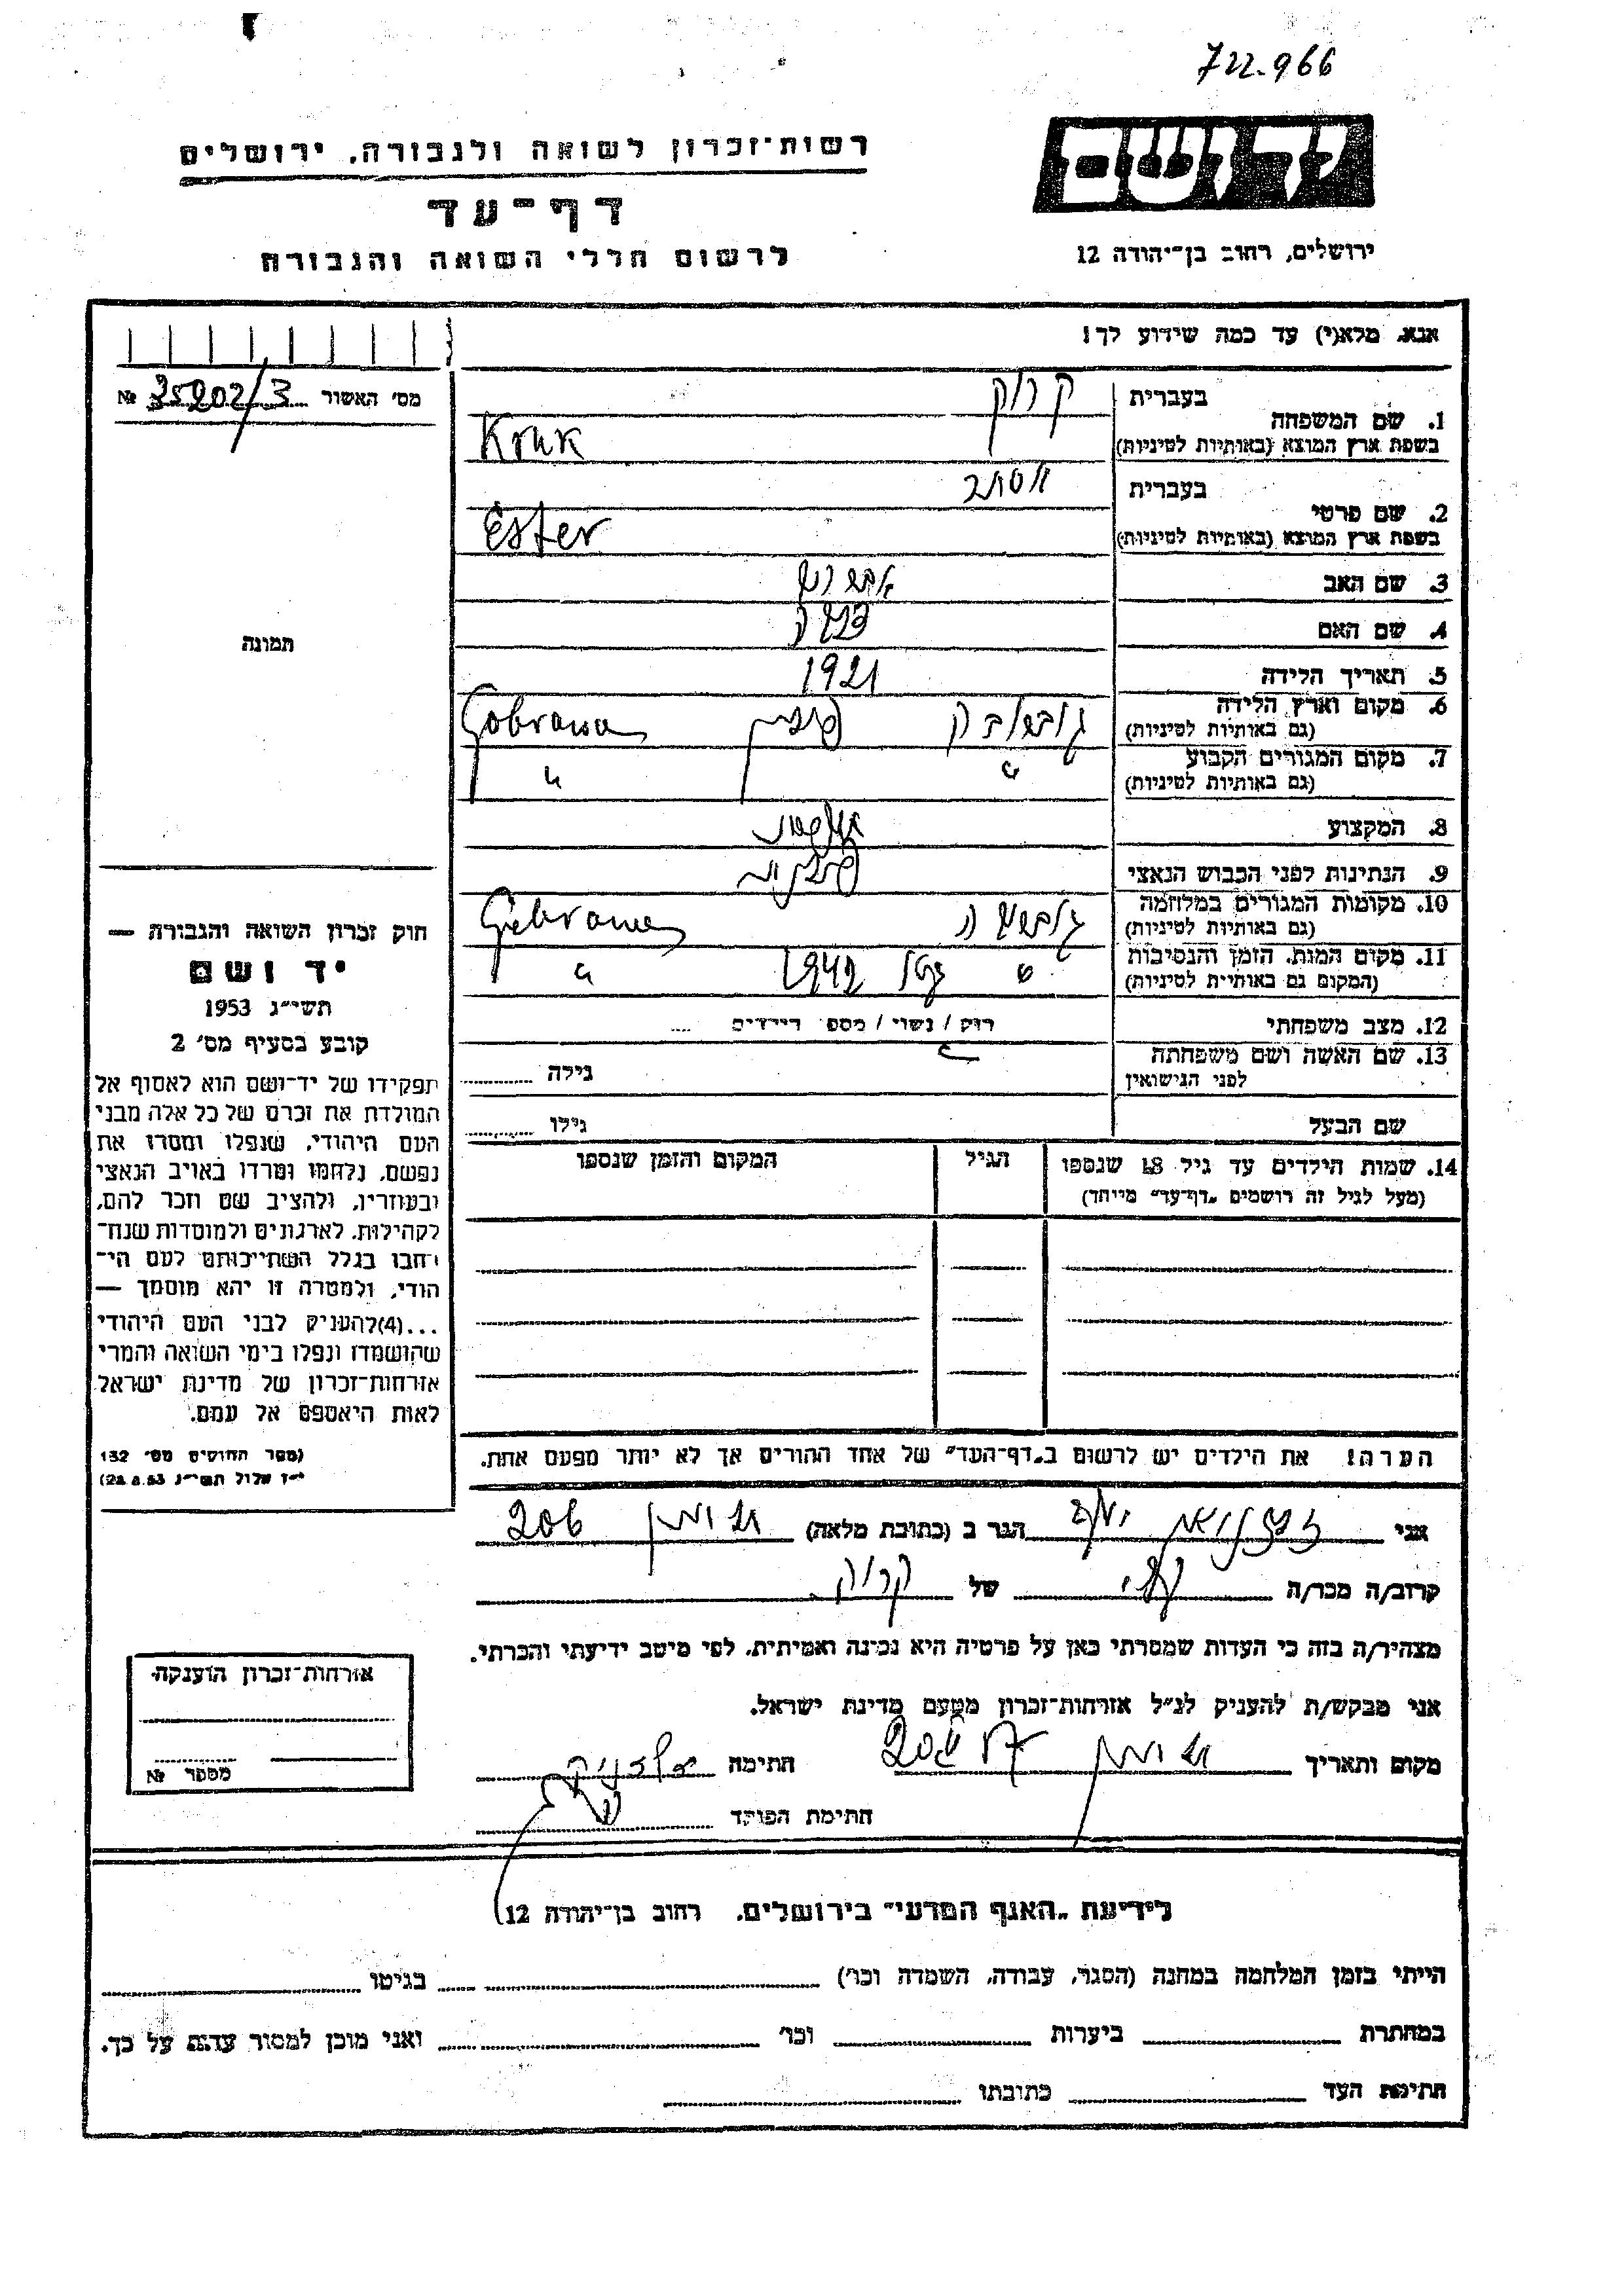 722.966
יד ושם
רשות־זכרון לשואה ולגבורה, ירושלים
דף־עד
לרשום חללי השואה והגבורה
ירושלים, רחוב בן־יהודה 12
אנא, מלא(י) עד כמה שידוע לך!
מס׳ האשור 35202/3 №
תמונה
1. שם המשפחה
בעברית קרוק
בשפת ארץ המוצא (באותיות לטיניות) Kruk
2. שם פרטי
בעברית אסתר
בשפת ארץ המוצא (באותיות לטיניות) Ester
3. שם האב
4. שם האם
5. תאריך הלידה 1921
6. מקום וארץ הלידה
(גם באותיות לטיניות) פולין
7. מקום המגורים הקבוע
(גם באותיות לטיניות) " "
8. המקצוע
9. הנתינות לפני הכבוש הנאצי פולנית
10. מקומות המגורים במלחמה
(גם באותיות לטיניות)
11. מקום המות, הזמן והנסיבות
(המקום גם באותיות לטיניות) " 1942 "
12. מצב משפחתי רוק / נשוי / מספר הילדים ....
13. שם האשה ושם משפחתה
לפני הנישואין גילה
שם הבעל גילו
14. שמות הילדים עד גיל 18 שנספו
(מעל לגיל זה רושמים „דף־עד” מייחד)
הגיל
המקום והזמן שנספו
הערה! את הילדים יש לרשום ב„דף־העד” של אחד ההורים אך לא יותר מפעם אחת.
חוק זכרון השואה והגבורה —
יד ושם
תשי״ג 1953
קובע בסעיף מס׳ 2
תפקידו של יד־ושם הוא לאסוף אל
המולדת את זכרם של כל אלה מבני
העם היהודי, שנפלו ומסרו את
נפשם, נלחמו ומרדו באויב הנאצי
ובעוזריו, ולהציב שם וזכר להם,
לקהילות, לארגונים ולמוסדות שנח־
רבו בגלל השתייכותם לעם הי־
הודי, ולמטרה זו יהא מוסמך —
...(4) להעניק לבני העם היהודי
שהושמדו ונפלו בימי השואה והמרי
אזרחות־זכרון של מדינת ישראל
לאות היאספם אל עמם.
(ספר החוקים מס׳ 132
י״ז אלול תשי״ג 28.8.53)
אני הגר ב (כתובת מלאה) 206
קרוב/ה מכר/ה של קרוק
מצהיר/ה בזה כי העדות שמסרתי כאן על פרטיה היא נכונה ואמיתית, לפי מיטב ידיעתי והכרתי.
אני מבקש/ת להעניק לנ״ל אזרחות־זכרון מטעם מדינת ישראל.
מקום ותאריך חתימה
חתימת הפוקד
אזרחות־זכרון הוענקה
מספר №
לידיעת „האגף המדעי” בירושלים, רחוב בן־יהודה 12
הייתי בזמן המלחמה במחנה (הסגר, עבודה, השמדה וכו׳) בגיטו
במחתרת ביערות וכו׳ ואני מוכן למסור עדות על כך.
חתימת העד כתובתו